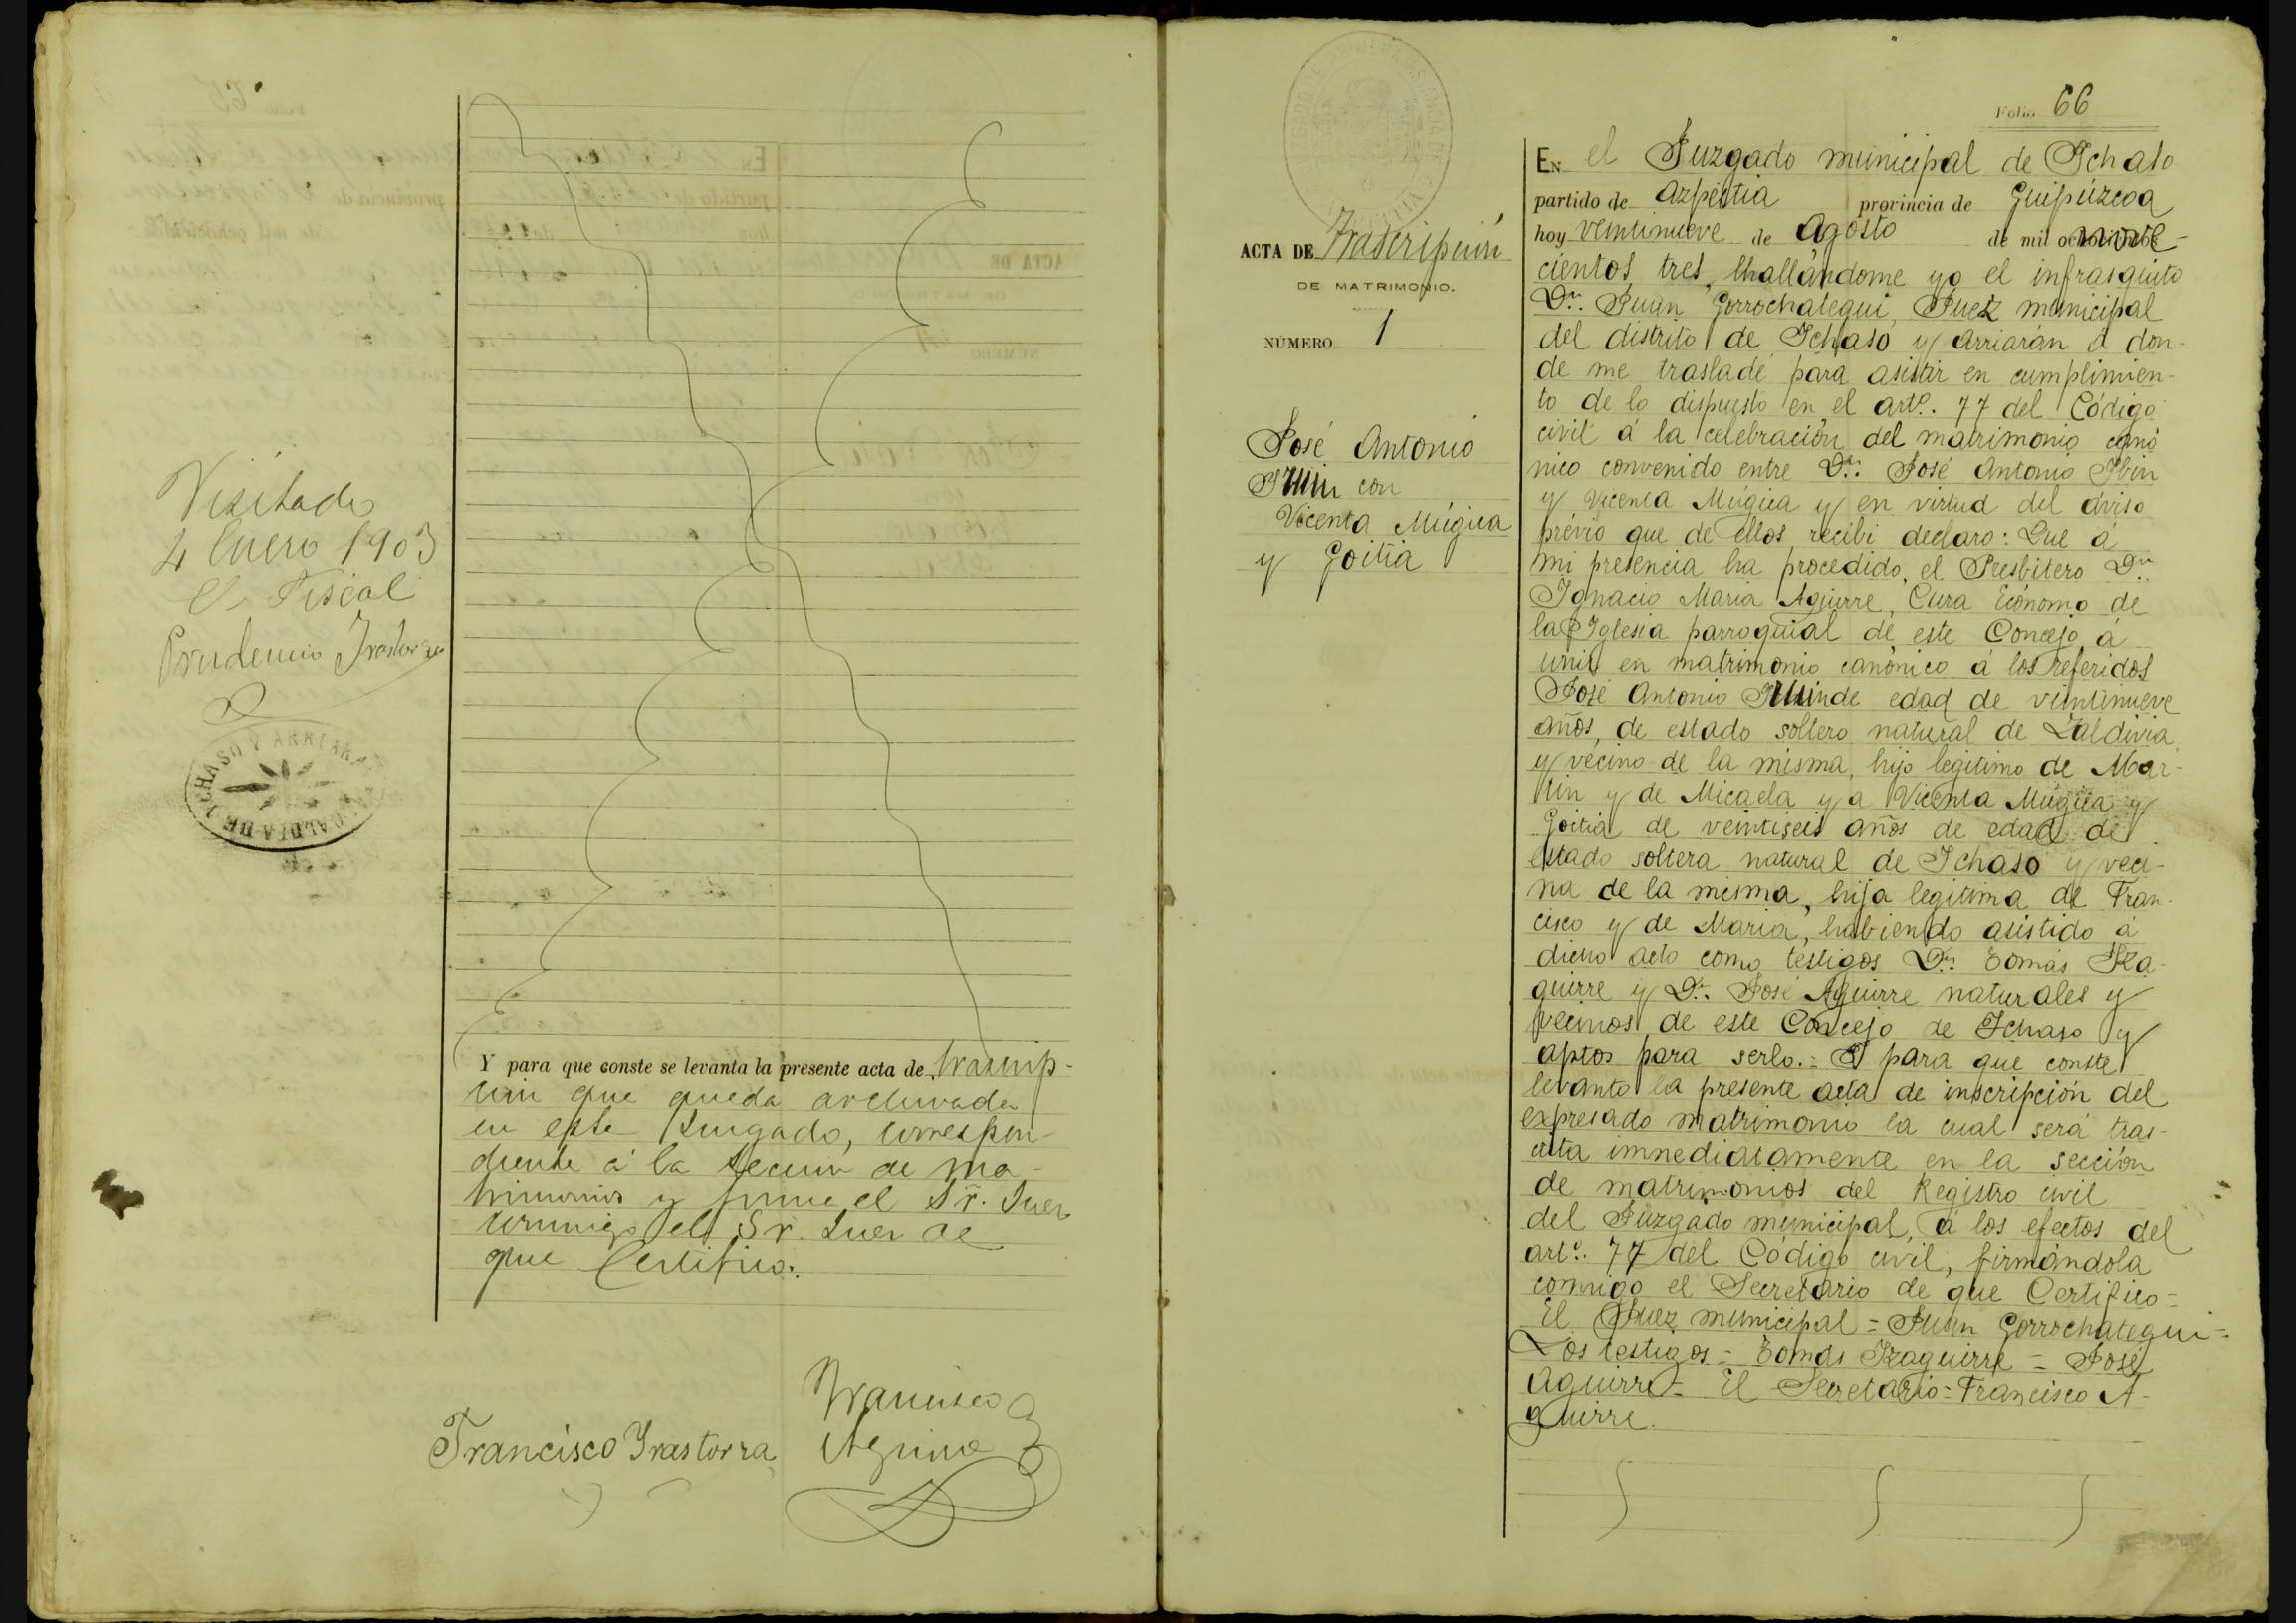 Visitado
4 Enero 1903
El Fiscal
Prudencio Irastorza
ICHASO Y ARRIARAN
ALCALDIA DE
Y para que conste se levanta la presente acta de trascrip-
ción que queda archivada
en este Juzgado, correspon-
diente á la sección de ma-
trimonios y firma el Sr. Juez
conmigo el Sr. Juez de
que Certifico.
Francisco
Francisco Irastorza Aguirre
Folio 66
ACTA DE Trascripción
DE MATRIMONIO.
NÚMERO 1
José Antonio
con
Vicenta Múgica
y Goitia
EN el Juzgado municipal de Ichaso
partido de Azpeitia provincia de Guipúzcoa
hoy veintinueve de Agosto de mil nove-
cientos tres, hallándome yo el infrasquito
Dn. Juan Gorrochategui, Juez municipal
del distrito de Ichaso y Arriarán á don-
de me trasladé para asistir en cumplimien-
to de lo dispuesto en el artº. 77 del Código
civil á la celebración del matrimonio canó
nico convenido entre Dn. José Antonio
y Vicenta Múgica y en virtud del áviso
prévio que de ellos recibi declaro: Que á
mi presencia ha procedido, el Presbitero Dn.
Ignacio Maria Aguirre, Cura Ecónomo de
la Iglesia parroquial de este Concejo á
unir en matrimonio canónico á los referidos
José Antonio de edad de veintinueve
años, de estado soltero natural de Zaldivia
y vecino de la misma, hijo legitimo de Mar-
tin y de Micaela y a Vicenta Múgica y
Goitia de veintiseis años de edad de
estado soltera natural de Ichaso y veci-
na de la misma, hija legitima de Fran-
cisco y de Maria, habiendo asistido á
dicho acto como testigos Dn. Tomás Iza-
guirre y Dn. José Aguirre naturales y
vecinos de este Concejo de Ichaso y
aptos para serlo.= Y para que conste
levanto la presente acta de inscripción del
expresado matrimonio la cual será tras-
crita imnediatamente en la sección
de matrimonios del Registro civil
del Juzgado municipal, á los efectos del
artº. 77 del Código civil, firmándola
conmigo el Secretario de que Certifico=
El Juez municipal = Juan Gorrochategui=
Los testigos = Tomás Izaguirre = José
Aguirre = El Secretario = Francisco A-
guirre.